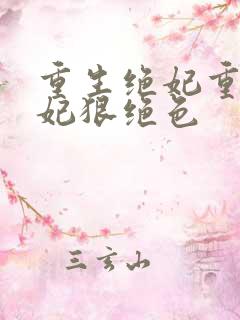 重生绝妃重
妃狠绝色
三玄山